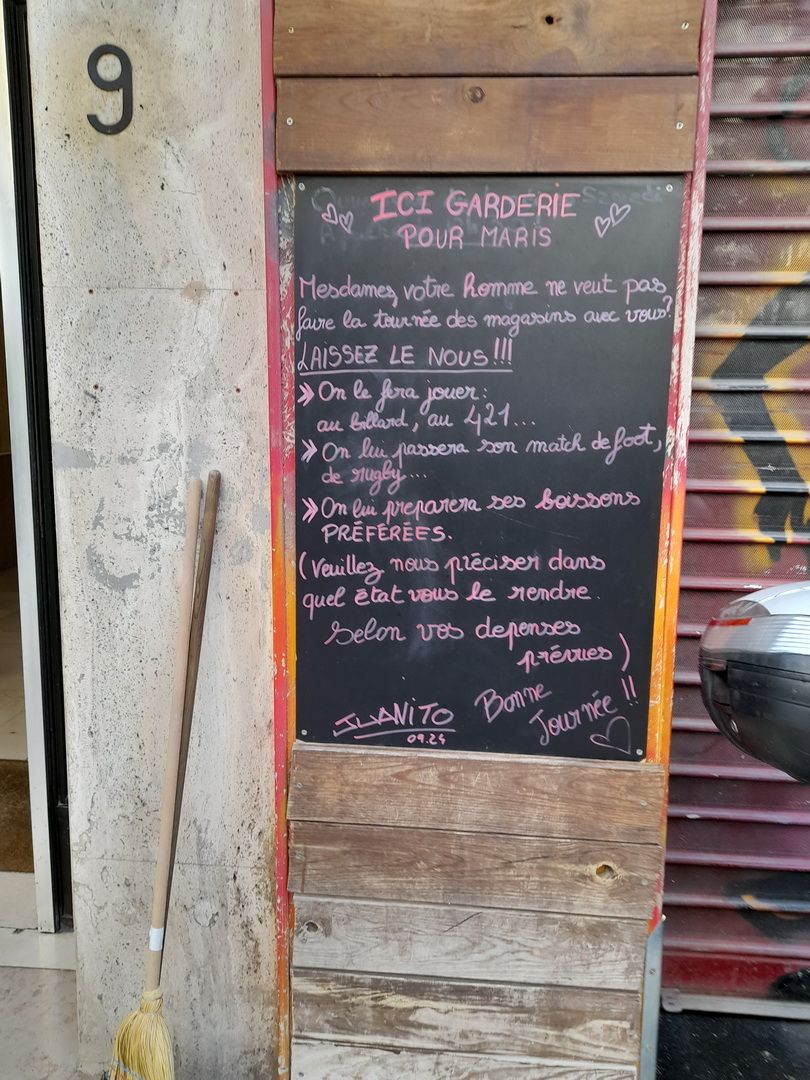 9
ICI GARDERIE
POUR MARIS
Mesdames, votre homme ne veut pas
faire la tournée des magasins avec vous?
LAISSEZ LE NOUS!!!
» On le fera jouer:
au billard, au 421...
» On lui passera son match de foot,
de rugby...
» On lui preparera ses boissons
PRÉFÉRÉES.
(Veuillez nous préciser dans
quel état vous le rendre.
Selon vos depenses
prévues)
JUANITO
09.24
Bonne
Journée!!